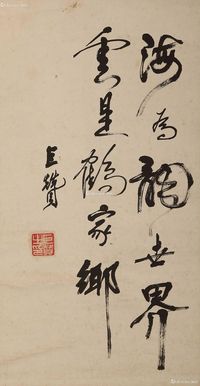 海為龍世界
雲是鶴家鄉
巨贊